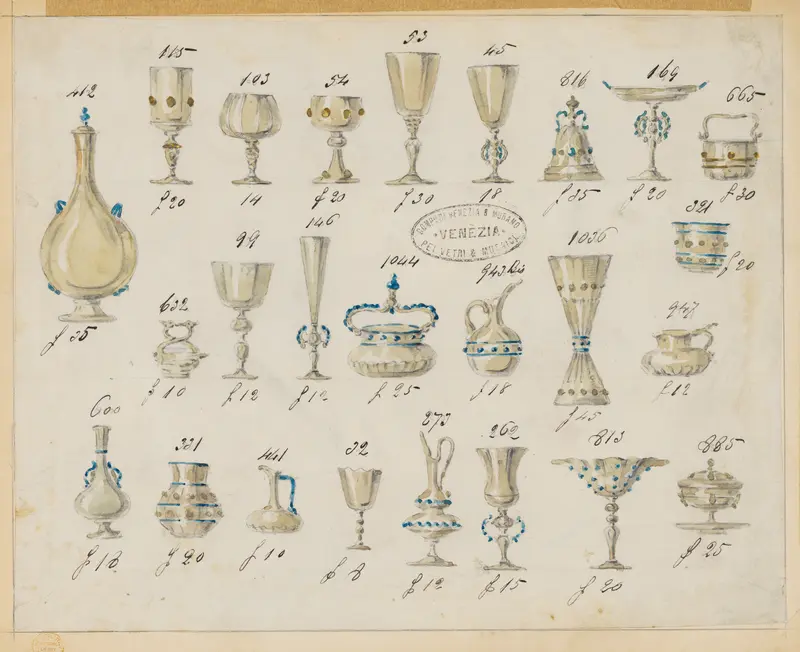 412
115
103
54
53
45
816
169
665
£ 20
14
£ 20
£ 30
18
£ 35
£ 20
£ 30
VENEZIA & MURANO
VENEZIA
PEI VETRI &
321
£ 20
£ 35
632
99
146
1044
943 Bis
1036
947
£ 10
£ 12
£ 12
£ 25
£ 18
£ 45
£ 12
600
331
441
32
273
262
813
885
£ 18
£ 20
£ 10
£ 8
£ 12
£ 15
£ 20
£ 25